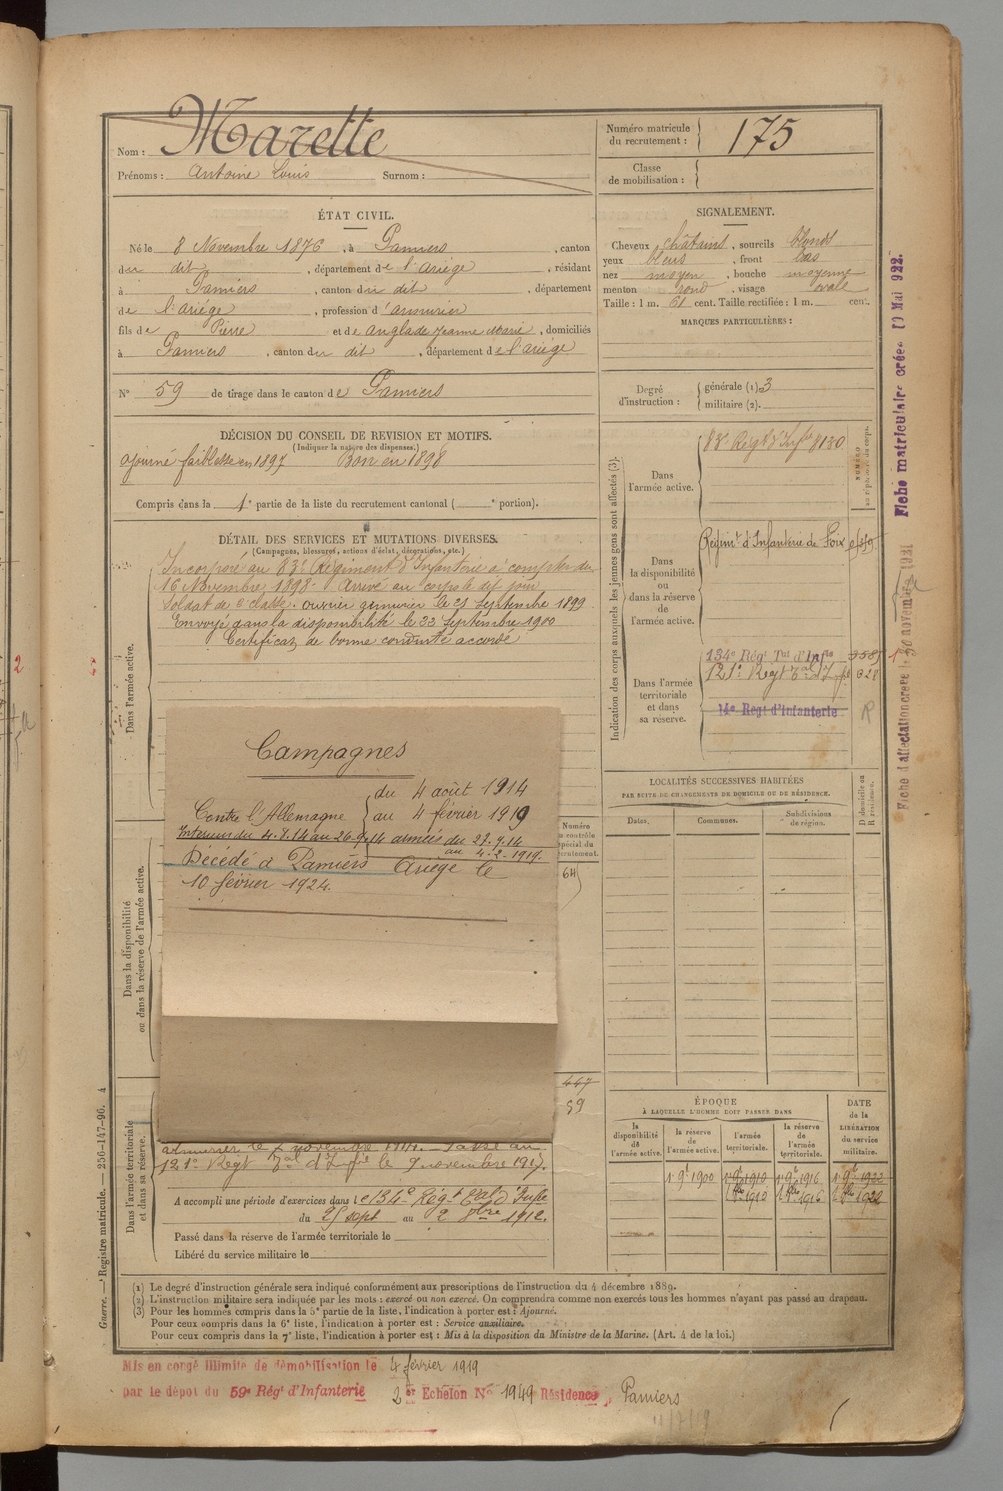 Nom : Marette
Prénoms : Antoine Louis Surnom :
Numéro matricule du recrutement : 175
Classe de mobilisation :
ÉTAT CIVIL.
Né le 8 Novembre 1876, à Pamiers, canton
du dit, département de l'ariège, résidant
à Pamiers, canton du dit, département
de l'ariége, profession d'armurier
fils de Pierre et de Anglade Jeanne Marie, domiciliés
à Pamiers, canton du dit, département de l'ariège
N° 59 de tirage dans le canton de Pamiers
SIGNALEMENT.
Cheveux châtains, sourcils blonds
yeux bleus, front bas
nez moyen, bouche moyenne
menton rond, visage ovale
Taille : 1 m. 61 cent. Taille rectifiée : 1 m. cent.
MARQUES PARTICULIÈRES :
Degré d'instruction :
générale (1). 3
militaire (2).
DÉCISION DU CONSEIL DE REVISION ET MOTIFS.
(Indiquer la nature des dispenses.)
ajourné faiblesse en 1897 Bon en 1898
Compris dans la 1e partie de la liste du recrutement cantonal ( e portion).
DÉTAIL DES SERVICES ET MUTATIONS DIVERSES.
(Campagnes, blessures, actions d'éclat, décorations, etc.)
Dans l'armée active.
Incorporé au 83e Régiment d'Infanterie à compter du
16 Novembre 1898. Arrivé au corps le dit jour
Soldat de 2e classe. ouvrier armurier le 21 Septembre 1899
Envoyé dans la disponibilité le 22 Septembre 1900
Certificat de bonne conduite accordé
Campagnes
Contre l'Allemagne
du 4 août 1914
au 4 février 1919
Intérieur du 4.8.14 au 26.9.14 armées du 27.9.14
au 4.2.1919.
Décédé à Pamiers Ariège le
10 février 1924.
Dans la disponibilité ou dans la réserve de l'armée active.
Numéro au contrôle spécial du recrutement.
447
59
Dans l'armée territoriale et dans sa réserve.
121e Régt Tal d'Infie le 9 novembre 1917.
A accompli une période d'exercices dans le 134e Régt Tal d'Infie
du 25 sept au 2 8bre 1912.
Passé dans la réserve de l'armée territoriale le
Libéré du service militaire le
Indication des corps auxquels les jeunes gens sont affectés (3).
Dans l'armée active.
83e Régt d'Infie 8130
NUMÉRO au répertoire du corps.
Dans la disponibilité ou dans la réserve de l'armée active.
Régimt d'Infanterie de Foix
Dans l'armée territoriale et dans sa réserve.
134e Régt Tal d'Infie
121e Régt Tal d'Infie 628
14e Régt d'Infanterie
LOCALITÉS SUCCESSIVES HABITÉES
PAR SUITE DE CHANGEMENTS DE DOMICILE OU DE RÉSIDENCE.
Dates. Communes. Subdivisions de région. D domicile ou R résidence.
ÉPOQUE
À LAQUELLE L'HOMME DOIT PASSER DANS
la disponibilité de l'armée active. la réserve de l'armée active. l'armée territoriale. la réserve de l'armée territoriale.
DATE de la LIBÉRATION du service militaire.
1r 9e 1900 1r 9e 1910 1r 9e 1916 1r 9e 1922
1r 8bre 1910 1r 8bre 1916 1r 8bre 1922
(1) Le degré d'instruction générale sera indiqué conformément aux prescriptions de l'instruction du 4 décembre 1889.
(2) L'instruction militaire sera indiquée par les mots : exercé ou non exercé. On comprendra comme non exercés tous les hommes n'ayant pas passé au drapeau.
(3) Pour les hommes compris dans la 5e partie de la liste, l'indication à porter est : Ajourné.
Pour ceux compris dans la 6e liste, l'indication à porter est : Service auxiliaire.
Pour ceux compris dans la 7e liste, l'indication à porter est : Mis à la disposition du Ministre de la Marine. (Art. 4 de la loi.)
Mis en congé illimité de démobilisation le 4 février 1919
par le dépôt du 59e Régt d'Infanterie 2er Echelon N° 1949 Résidence, Pamiers
Guerre. — Registre matricule. — 256-147-96. 4
Fiche matriculaire créée 10 Mai 922.
Fiche d'affectation créée le 30 novembre 1921